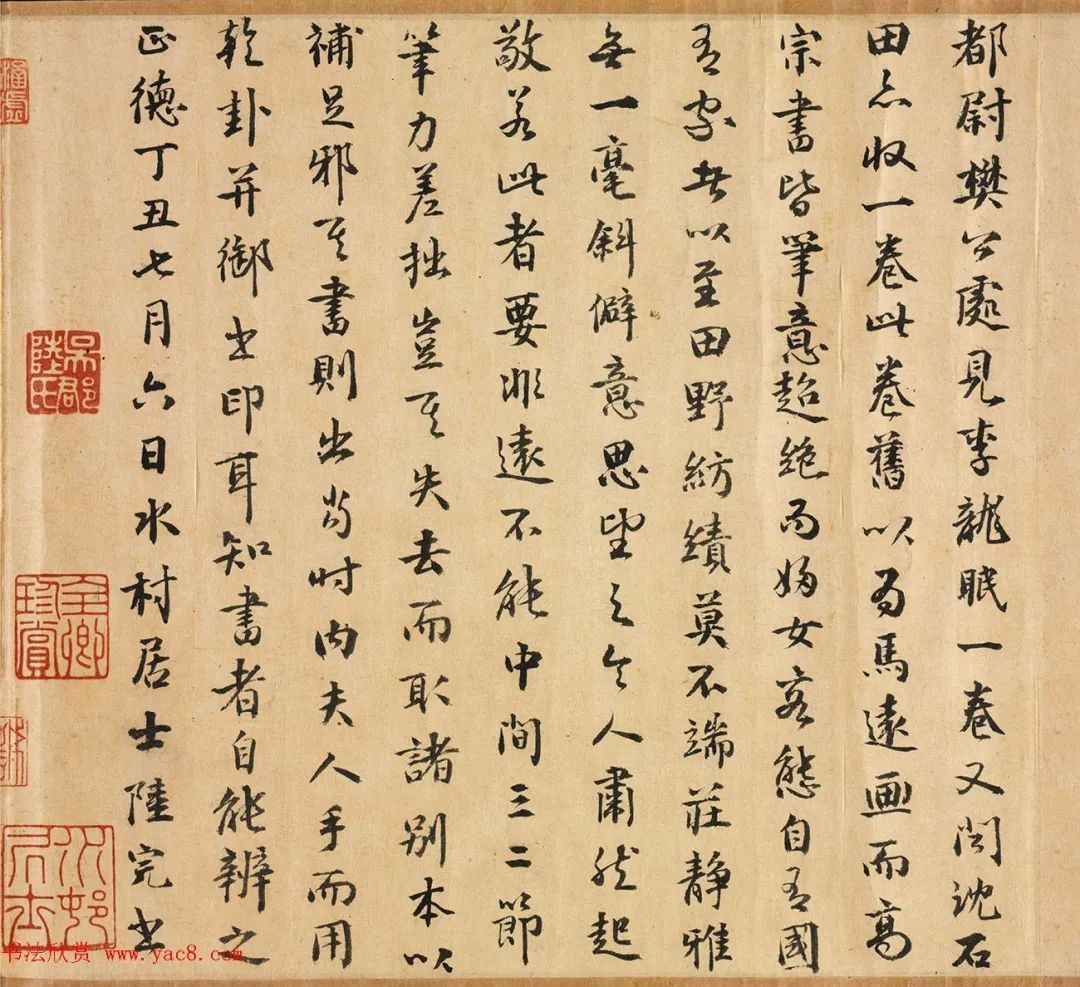 都尉樊公處見李龍眠一卷又聞沈石
田亦收一卷此卷舊以為馬遠画而高
宗書皆筆意超絶而婦女容態自有國
有家者以至田野紡績莫不端莊静雅
無一毫斜僻意思望之令人肅然起
敬若此者要非遠不能中間三二節
筆力差拙豈其失去而取諸別本以
補足邪其書則出當時内夫人手而用
乾卦并御書印耳知書者自能辨之
正德丁丑七月六日水村居士陸完書
吳郡陸氏
全卿珍賞
水邨居士
书法欣赏 www.yac8.com